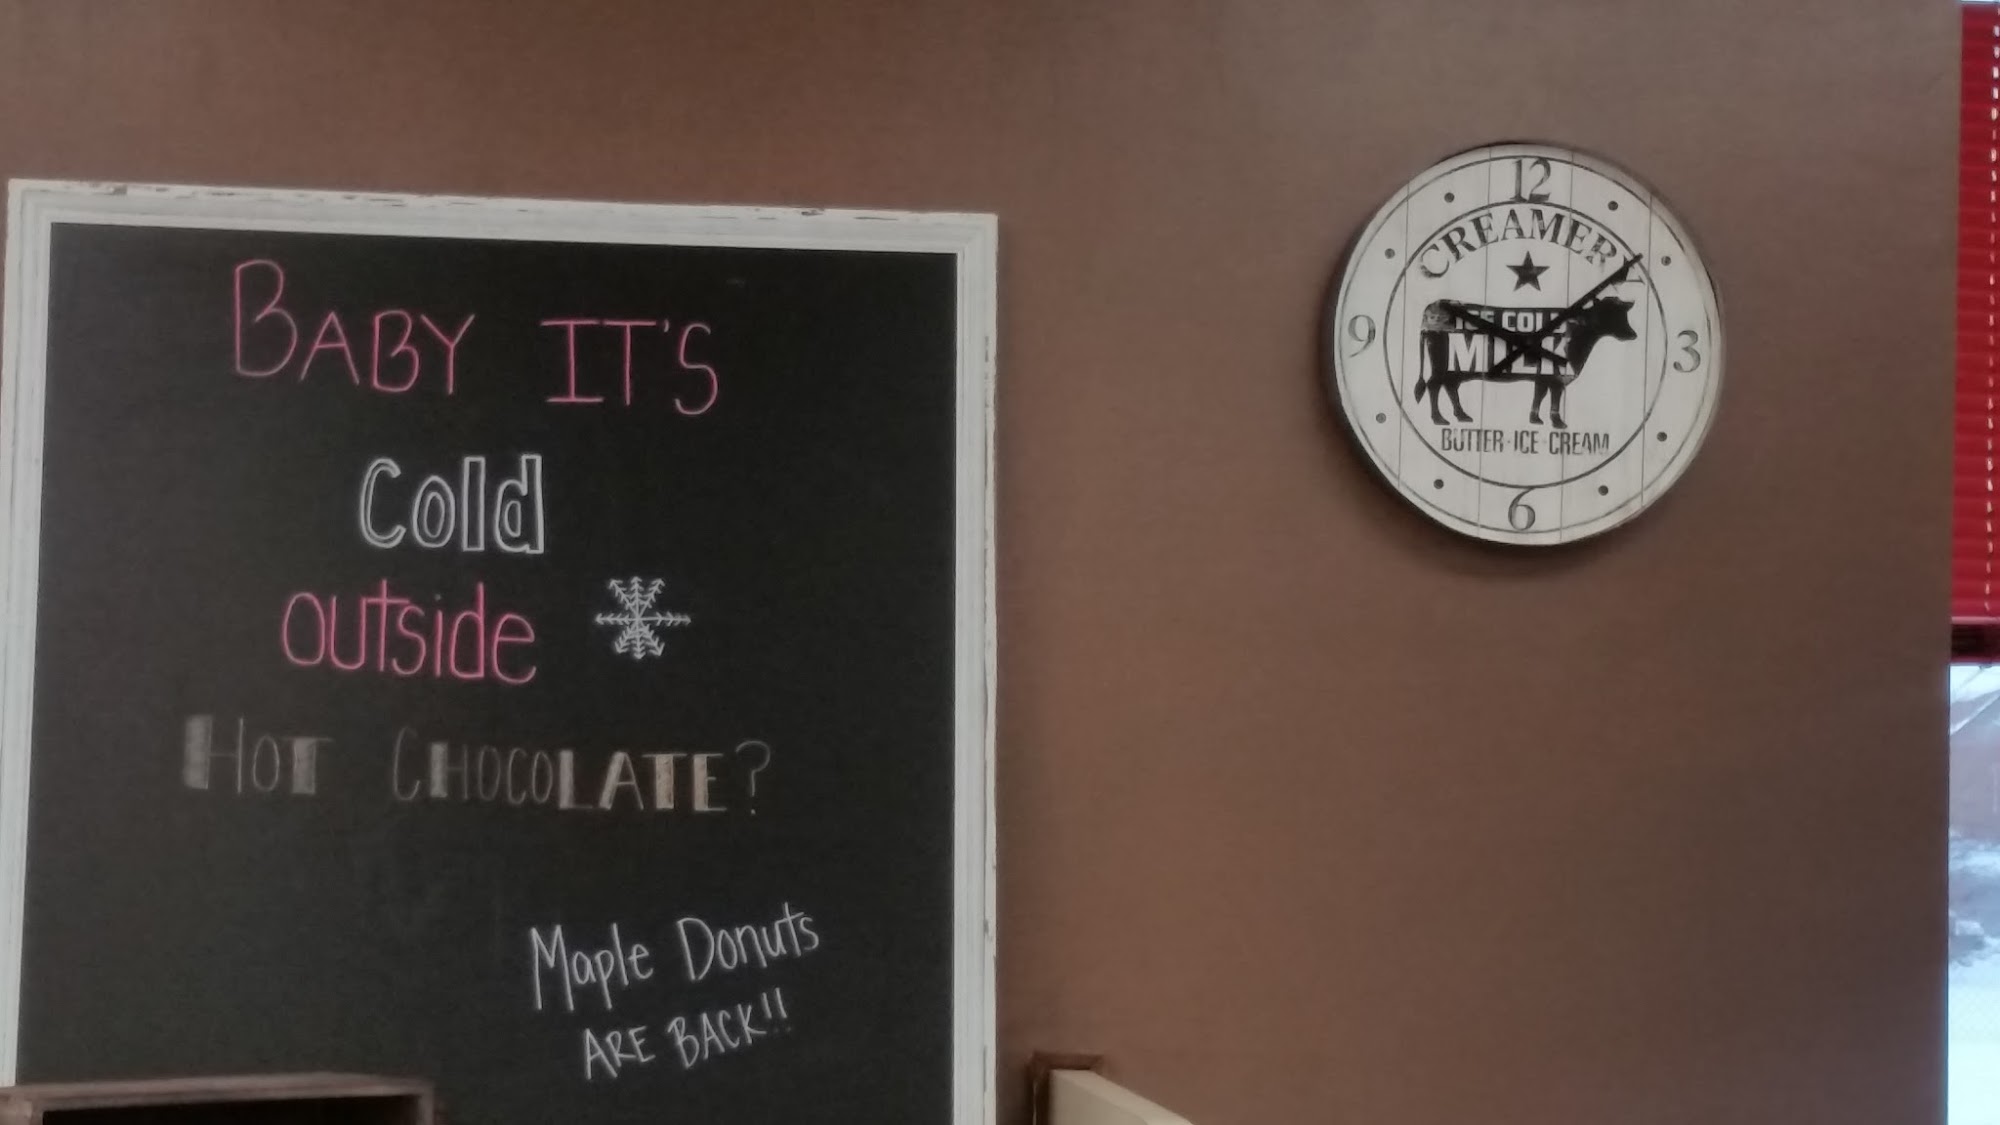 BABY IT'S
Cold
outside
HOT CHOCOLATE?
Maple Donuts
ARE BACK!!
12
CREAMERY
ICE COLD
MILK
9
3
BUTTER-ICE-CREAM
6